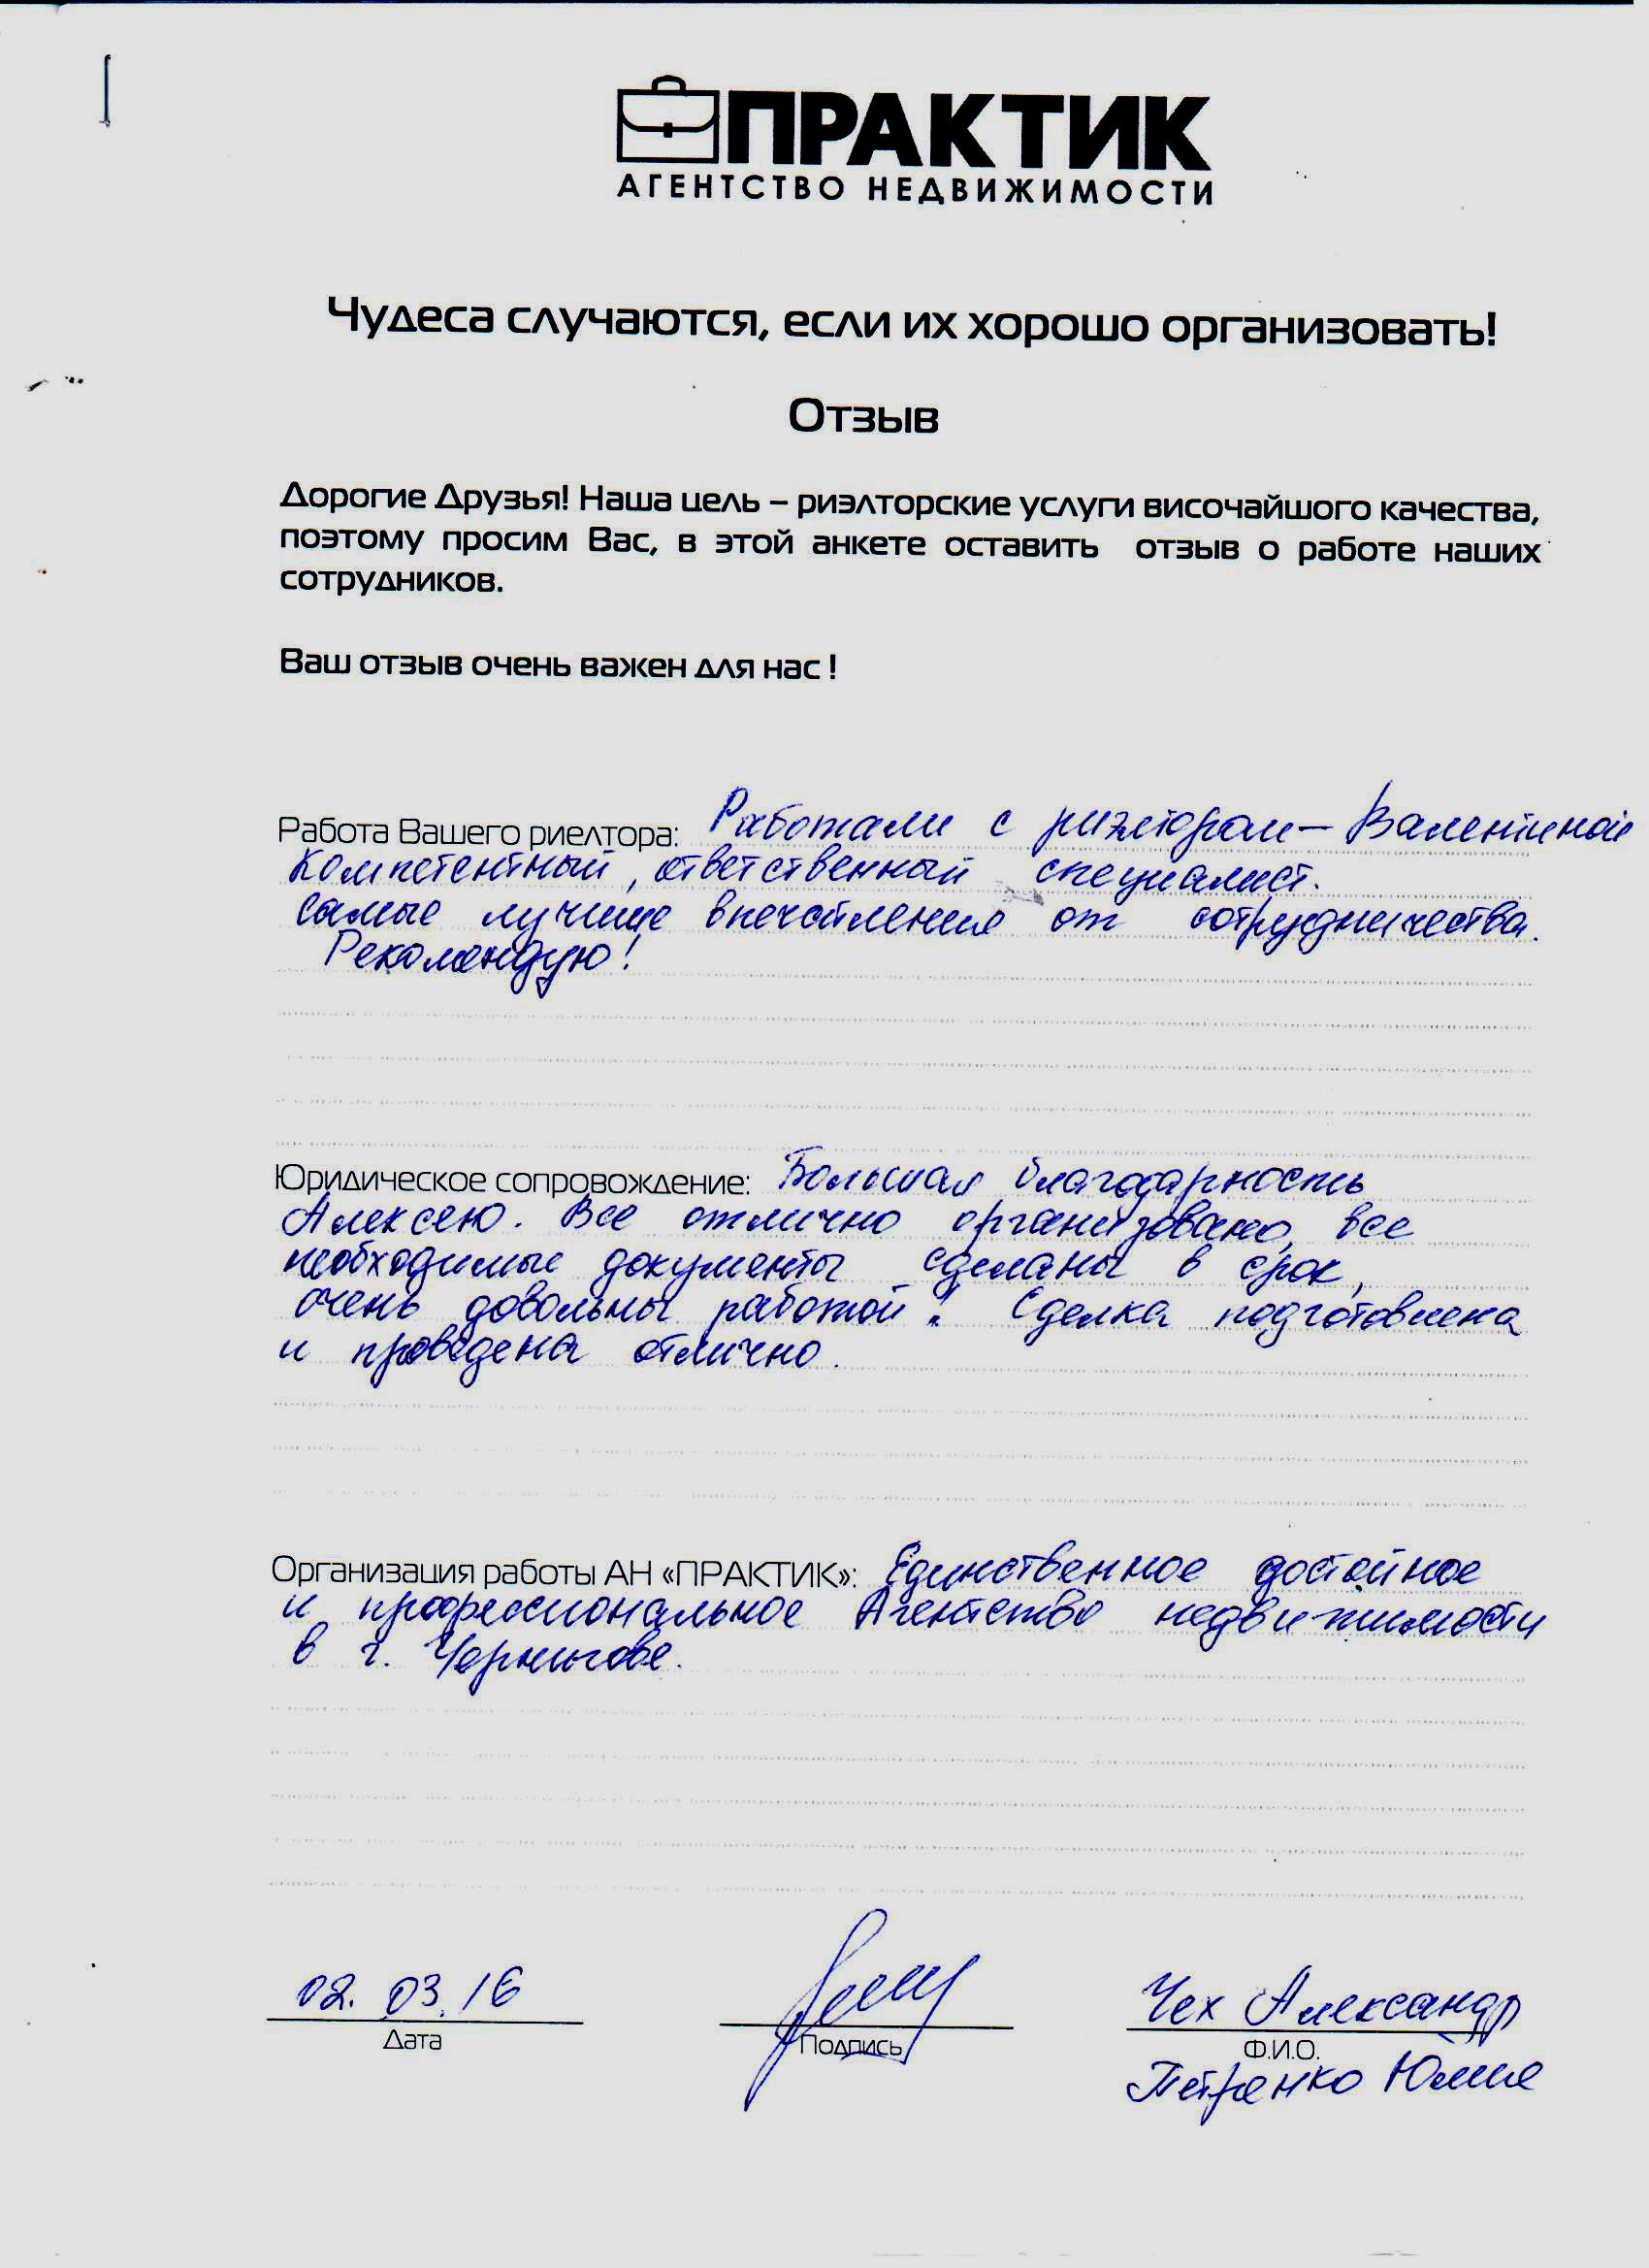 ПРАКТИК
АГЕНТСТВО НЕДВИЖИМОСТИ
Чудеса случаются, если их хорошо организовать!
Отзыв
Дорогие Друзья! Наша цель – риэлторские услуги височайшого качества,
поэтому просим Вас, в этой анкете оставить отзыв о работе наших
сотрудников.
Ваш отзыв очень важен для нас !
Работа Вашего риелтора: Работали с риэлтором – Валентиной
компетентный, ответственный специалист.
самые лучшие впечатления от сотрудничества.
Рекомендую!
Юридическое сопровождение: Большая благодарность
Алексею. Все отлично организовано, все
необходимые документы сделаны в срок,
очень довольны работой. Сделка подготовлена
и проведена отлично.
Организация работы АН «ПРАКТИК»: Единственное достойное
и профессиональное Агентство недвижимости
в г. Чернигове.
02.03.16
Чех Александр
Дата Подпись Ф.И.О.
Петренко Юлия